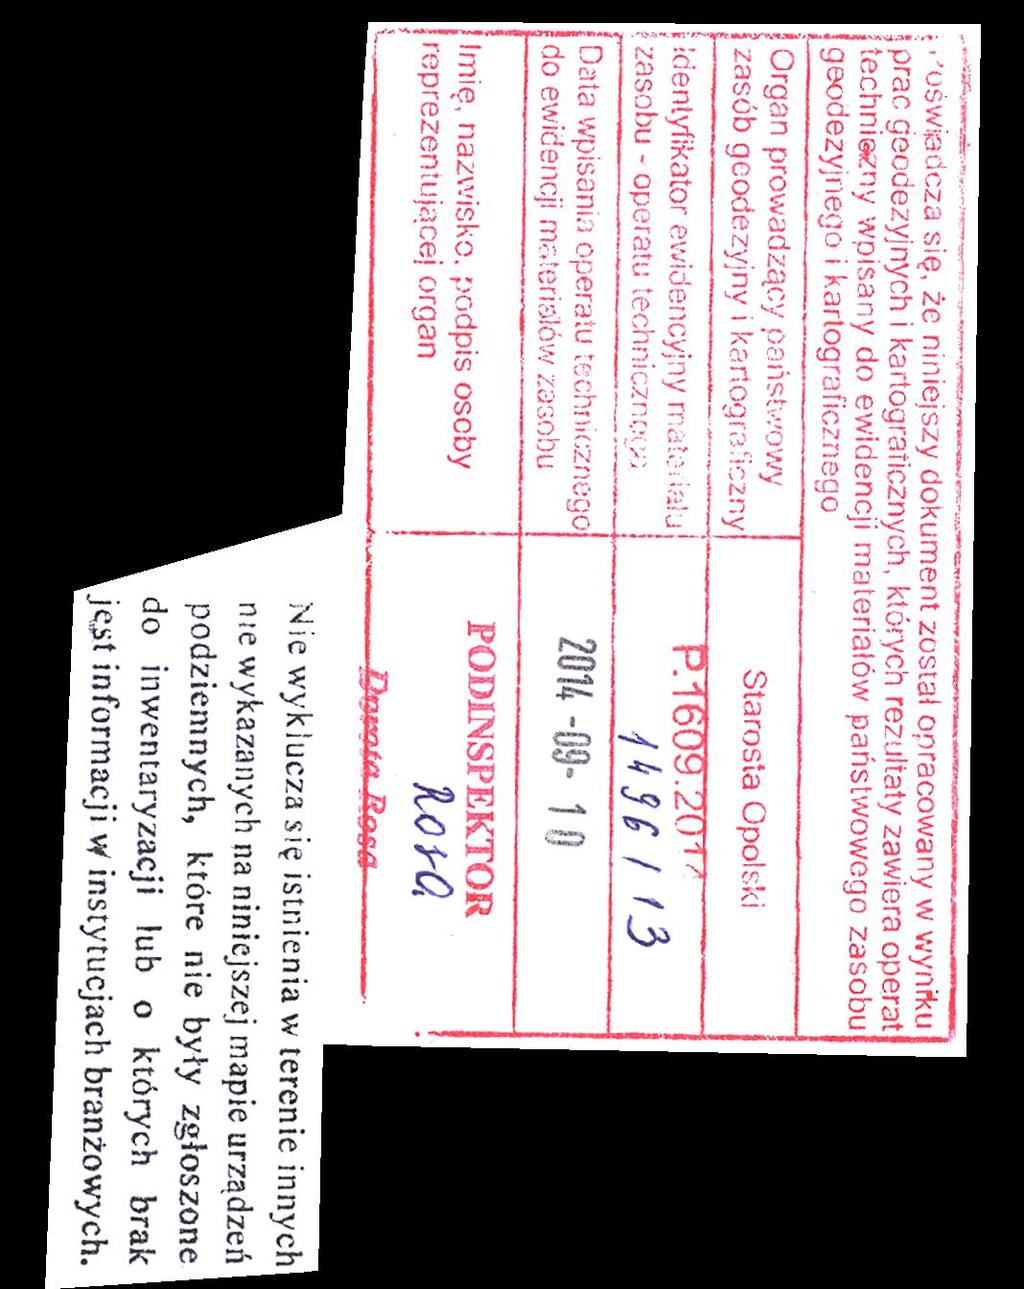 Poświadcza się, że niniejszy dokument został opracowany w wyniku
prac geodezyjnych i kartograficznych, których rezultaty zawiera operat
techniczny wpisany do ewidencji materiałów państwowego zasobu
geodezyjnego i kartograficznego
Organ prowadzący państwowy
zasób geodezyjny i kartograficzny
Starosta Opolski
Identyfikator ewidencyjny materiału
zasobu - operatu technicznego
P.1609.201
1496 / 13
Data wpisania operatu technicznego
do ewidencji materiałów zasobu
2014 -09- 10
Imię, nazwisko, podpis osoby
reprezentującej organ
PODINSPEKTOR
Rosa
Dorota Rosa
Nie wyklucza się istnienia w terenie innych
nie wykazanych na niniejszej mapie urządzeń
podziemnych, które nie były zgłoszone
do inwentaryzacji lub o których brak
jest informacji w instytucjach branżowych.